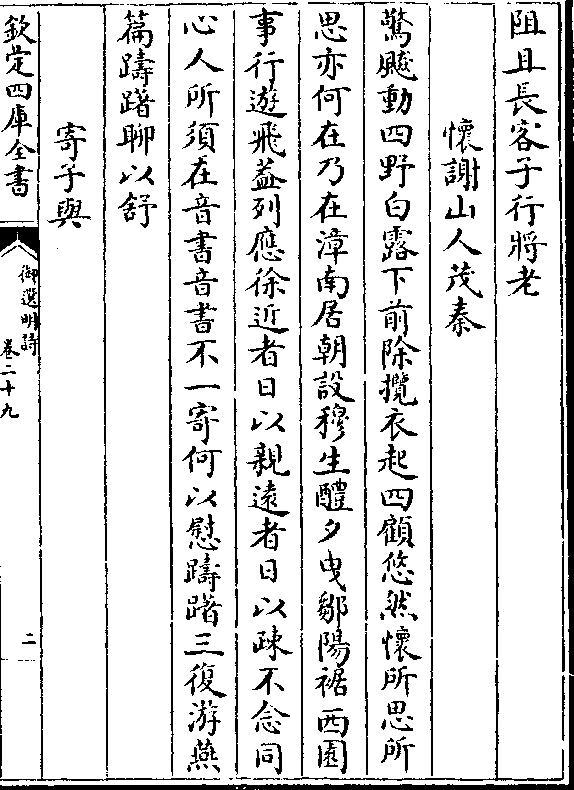 阻且長客子行將老
懷謝山人茂秦
驚飈動四野白露下前除攬衣起四顧悠然懷所思所
思亦何在乃在漳南居朝設穆生醴夕曳鄒陽裾西園
事行遊飛葢列應徐近者日以親遠者日以疎不念同
心人所須在音書音書不一寄何以慰躊躇三復游燕
篇躊躇聊以舒
寄子與
欽定四庫全書
御選明詩
卷二十九
二